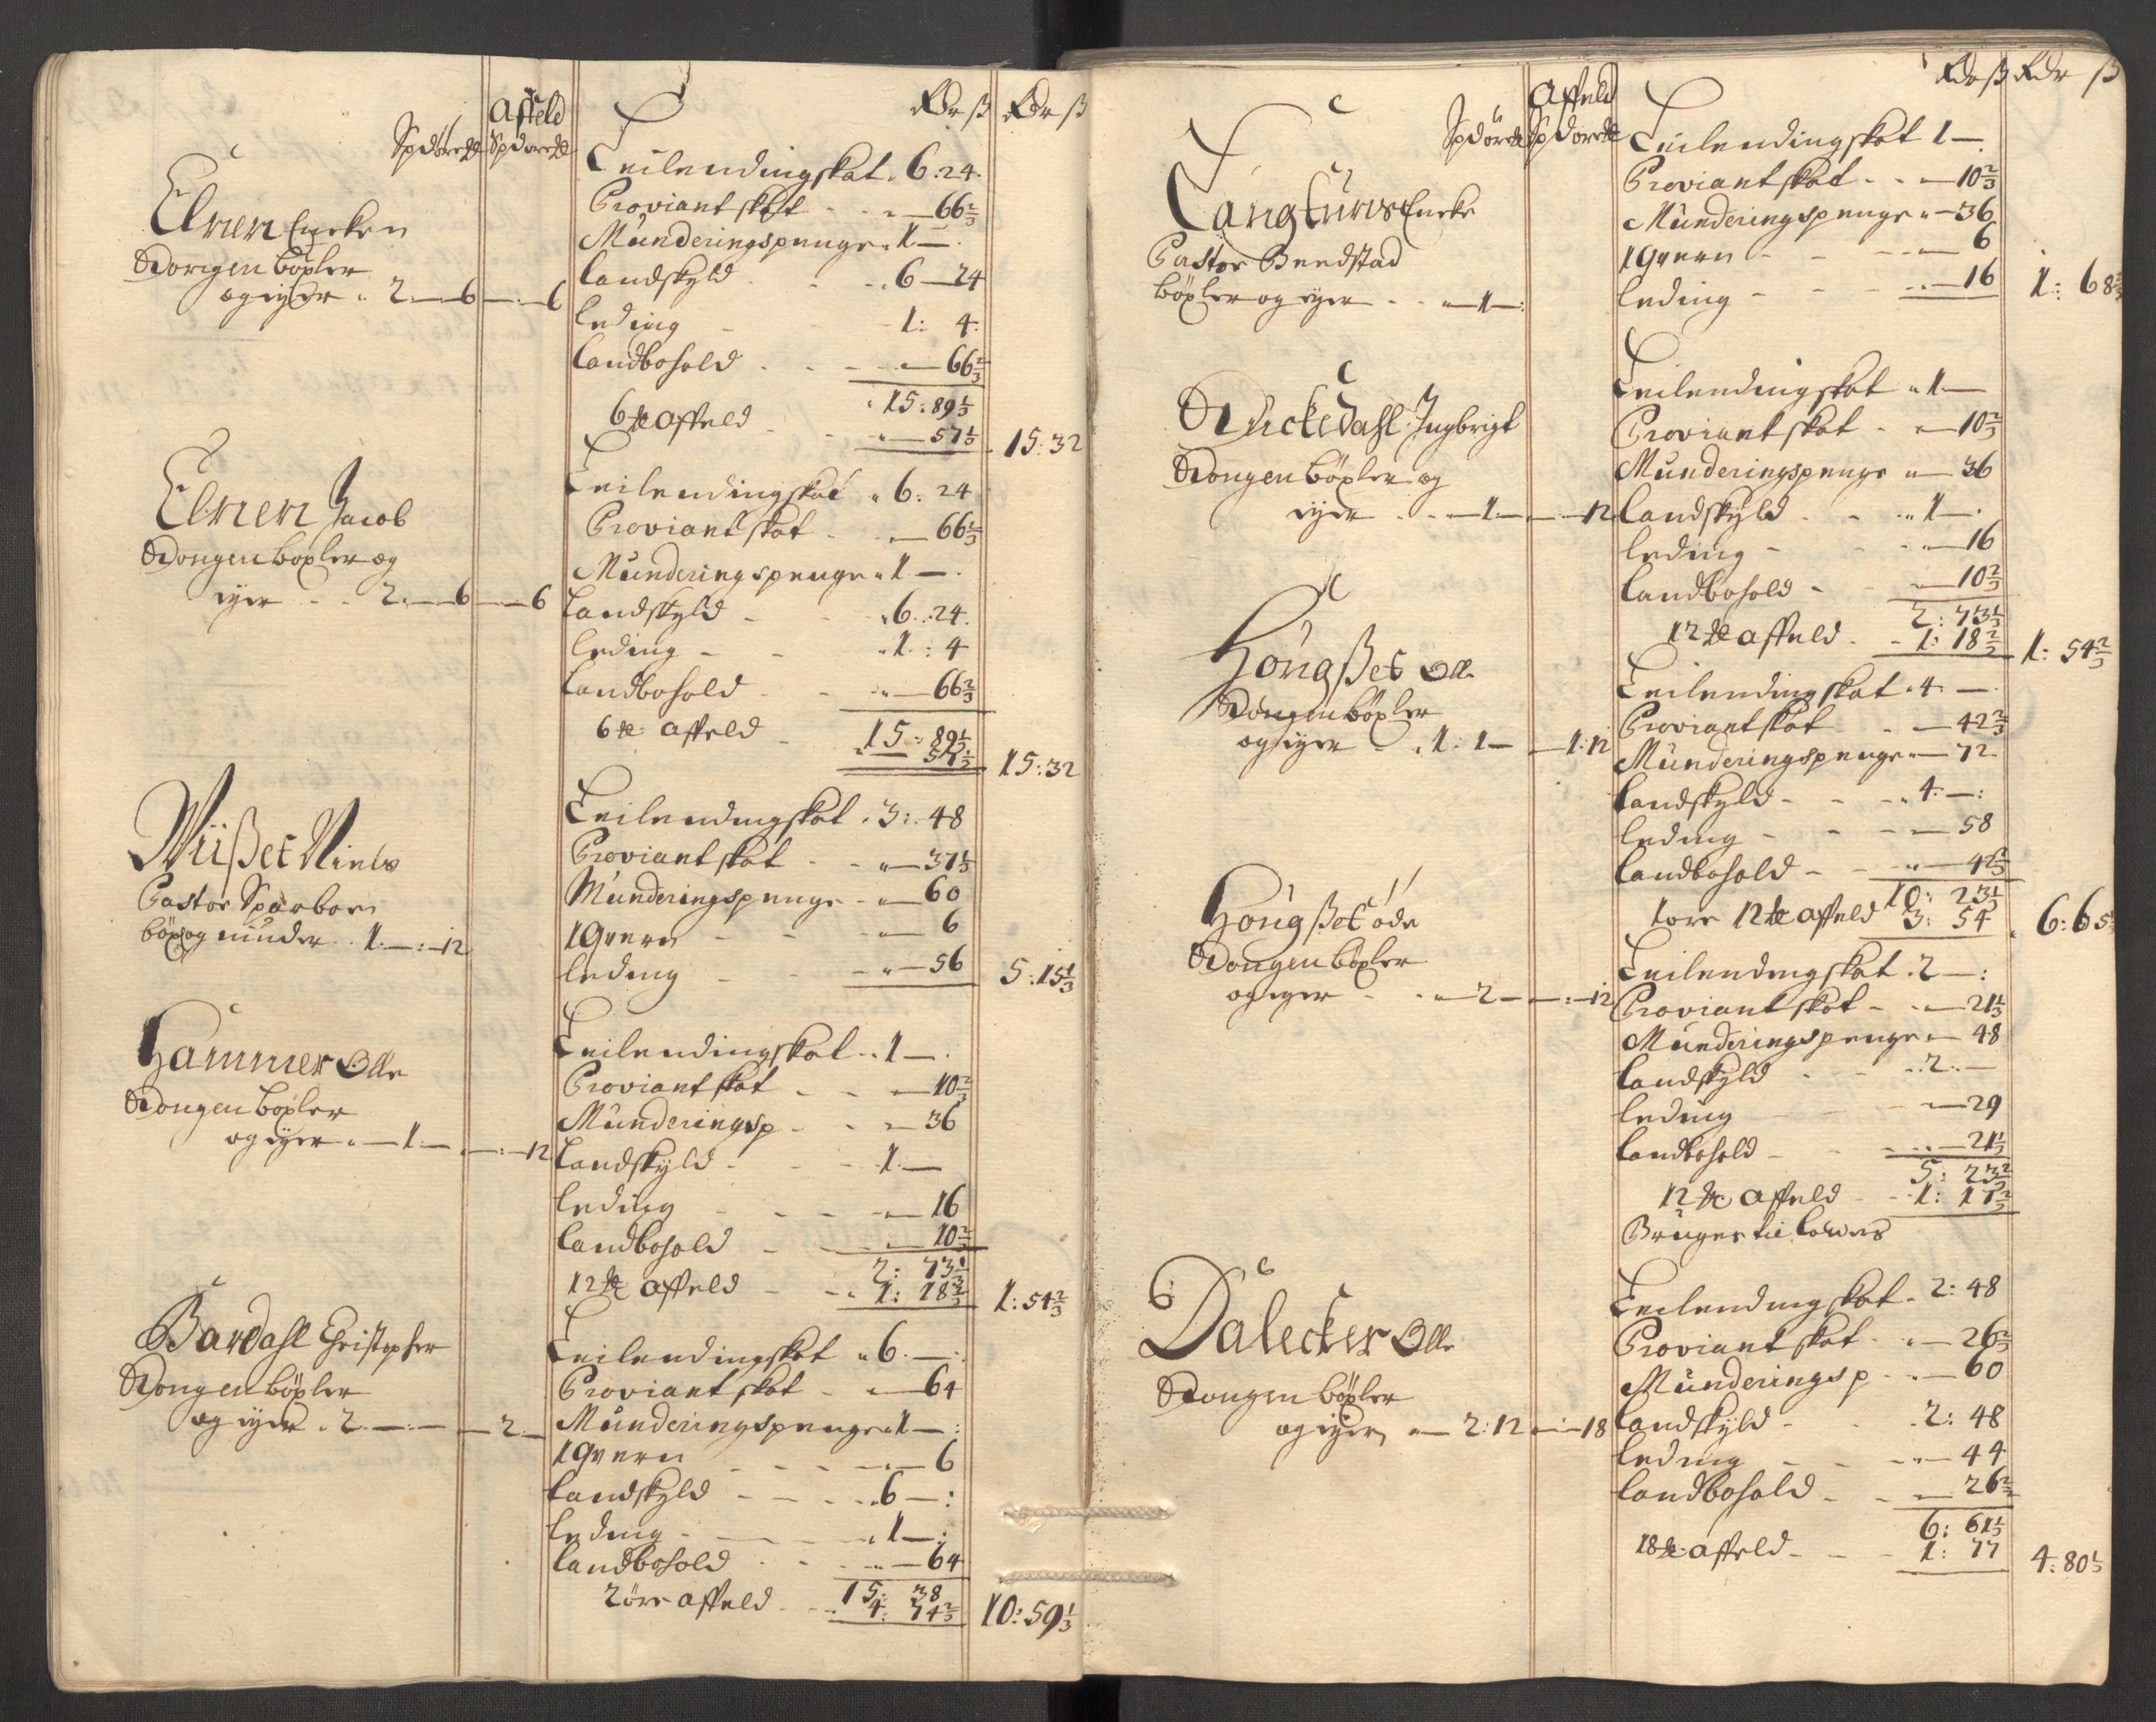 Affeld
Spdøre℔ Spdore℔ Rdr ß Rdr ß
Elnen Encken
Kongen böxler
og eyer 2 — 6 — 6
Leilendingskat 6 : 24
Proviantskat — 66⅔
Munderingspenge 1 —
Landskyld 6 — 24
leding 1 : 4
Landbohold — 66⅔
15 : 89⅓
6 ℔ affeld — 57⅓ 15 : 32
Elnen Jacob
Kongen boxler og
eyer 2 — 6 — 6
Leilendingskat 6 : 24
Proviantskat — 66⅔
Munderingspenge 1 —
Landskyld 6 : 24
leding 1 : 4
Landbohold — 66⅔
15 : 89⅓
6 ℔ affeld — 57⅓ 15 : 32
Wiißet Niels
Pastor Sparboe
böx og 1 — : 12
Leilendingskat 3 : 48
Proviantskat — 37⅓
Munderingspenge — 60
1 Qvern — 6
leding — 56 5 : 15⅓
Hammer Olle
Kongen boxler
og eyer — 1 — — : 12
Leilendingskat 1 —
Proviantskat — 10⅔
Munderingsp — 36
Landskyld 1 —
leding — 16
Landbohold — 10⅔
2 : 73⅓
12 ℔ affeld 1 : 18⅔ 1 : 54⅔
Bardahl Christopher
Kongen böxler
og eyer 2 — — 2 —
Leilendingskat 6 —
Proviantskat — 64
Munderingspenge 1 — :
1 Qvern — 6
Landskyld 6 — :
leding 1 — :
Landbohold — 64
15 : 38
2 öre affeld 4 : 74⅔ 10 : 59⅓
Affeld
Spdöre℔ Spdore℔ Rdr ß Rdr ß
Langtuns Encke
Pastor Beedstad
böxler og eyer — 1 — :
Leilendingskat 1 —
Proviantskat — 10⅔
Munderingspenge — 36
1 Qvern — 6
leding — 16 1 : 68⅔
Ingbrigt
Kongen böxler og
eyer — 1 — — 12
Leilendingskat 1 —
Proviantskat — 10⅔
Munderingspenge — 36
Landskyld 1 —
leding — 16
Landbohold — 10⅔
2 : 73⅓
12 ℔ affeld 1 : 18⅔ 1 : 54⅔
Höugßet Olle
Kongen böxler
og eyer 1 : 1 — — 1 : 12
Leilendingskat 4 —
Proviantskat — 42⅔
Munderingspenge — 72
Landskyld 4 — :
leding — 58
Landbohold — 42⅔
10 : 23⅓
1 ore 12 ℔ affeld 3 : 54 6 : 65
Höugßet öde
Kongen böxler
og eyer — 2 — — : 12
Leilendingskat 2 — :
Proviantskat — 21⅓
Munderingspenge — 48
Landskyld 2 —
leding — 29
Landbohold — 21⅓
5 : 23⅔
12 ℔ affeld 1 : 17⅔
Bruges til
Dalecker Olle
Kongen böxler
og eyer — 2 : 12 — : 18
Leilendingskat 2 : 48
Proviantskat — 26⅔
Munderingsp — 60
Landskyld 2 : 48
leding — 44
Landbohold — 26⅔
6 : 61⅓
18 ℔ affeld 1 : 77 4 : 80⅓